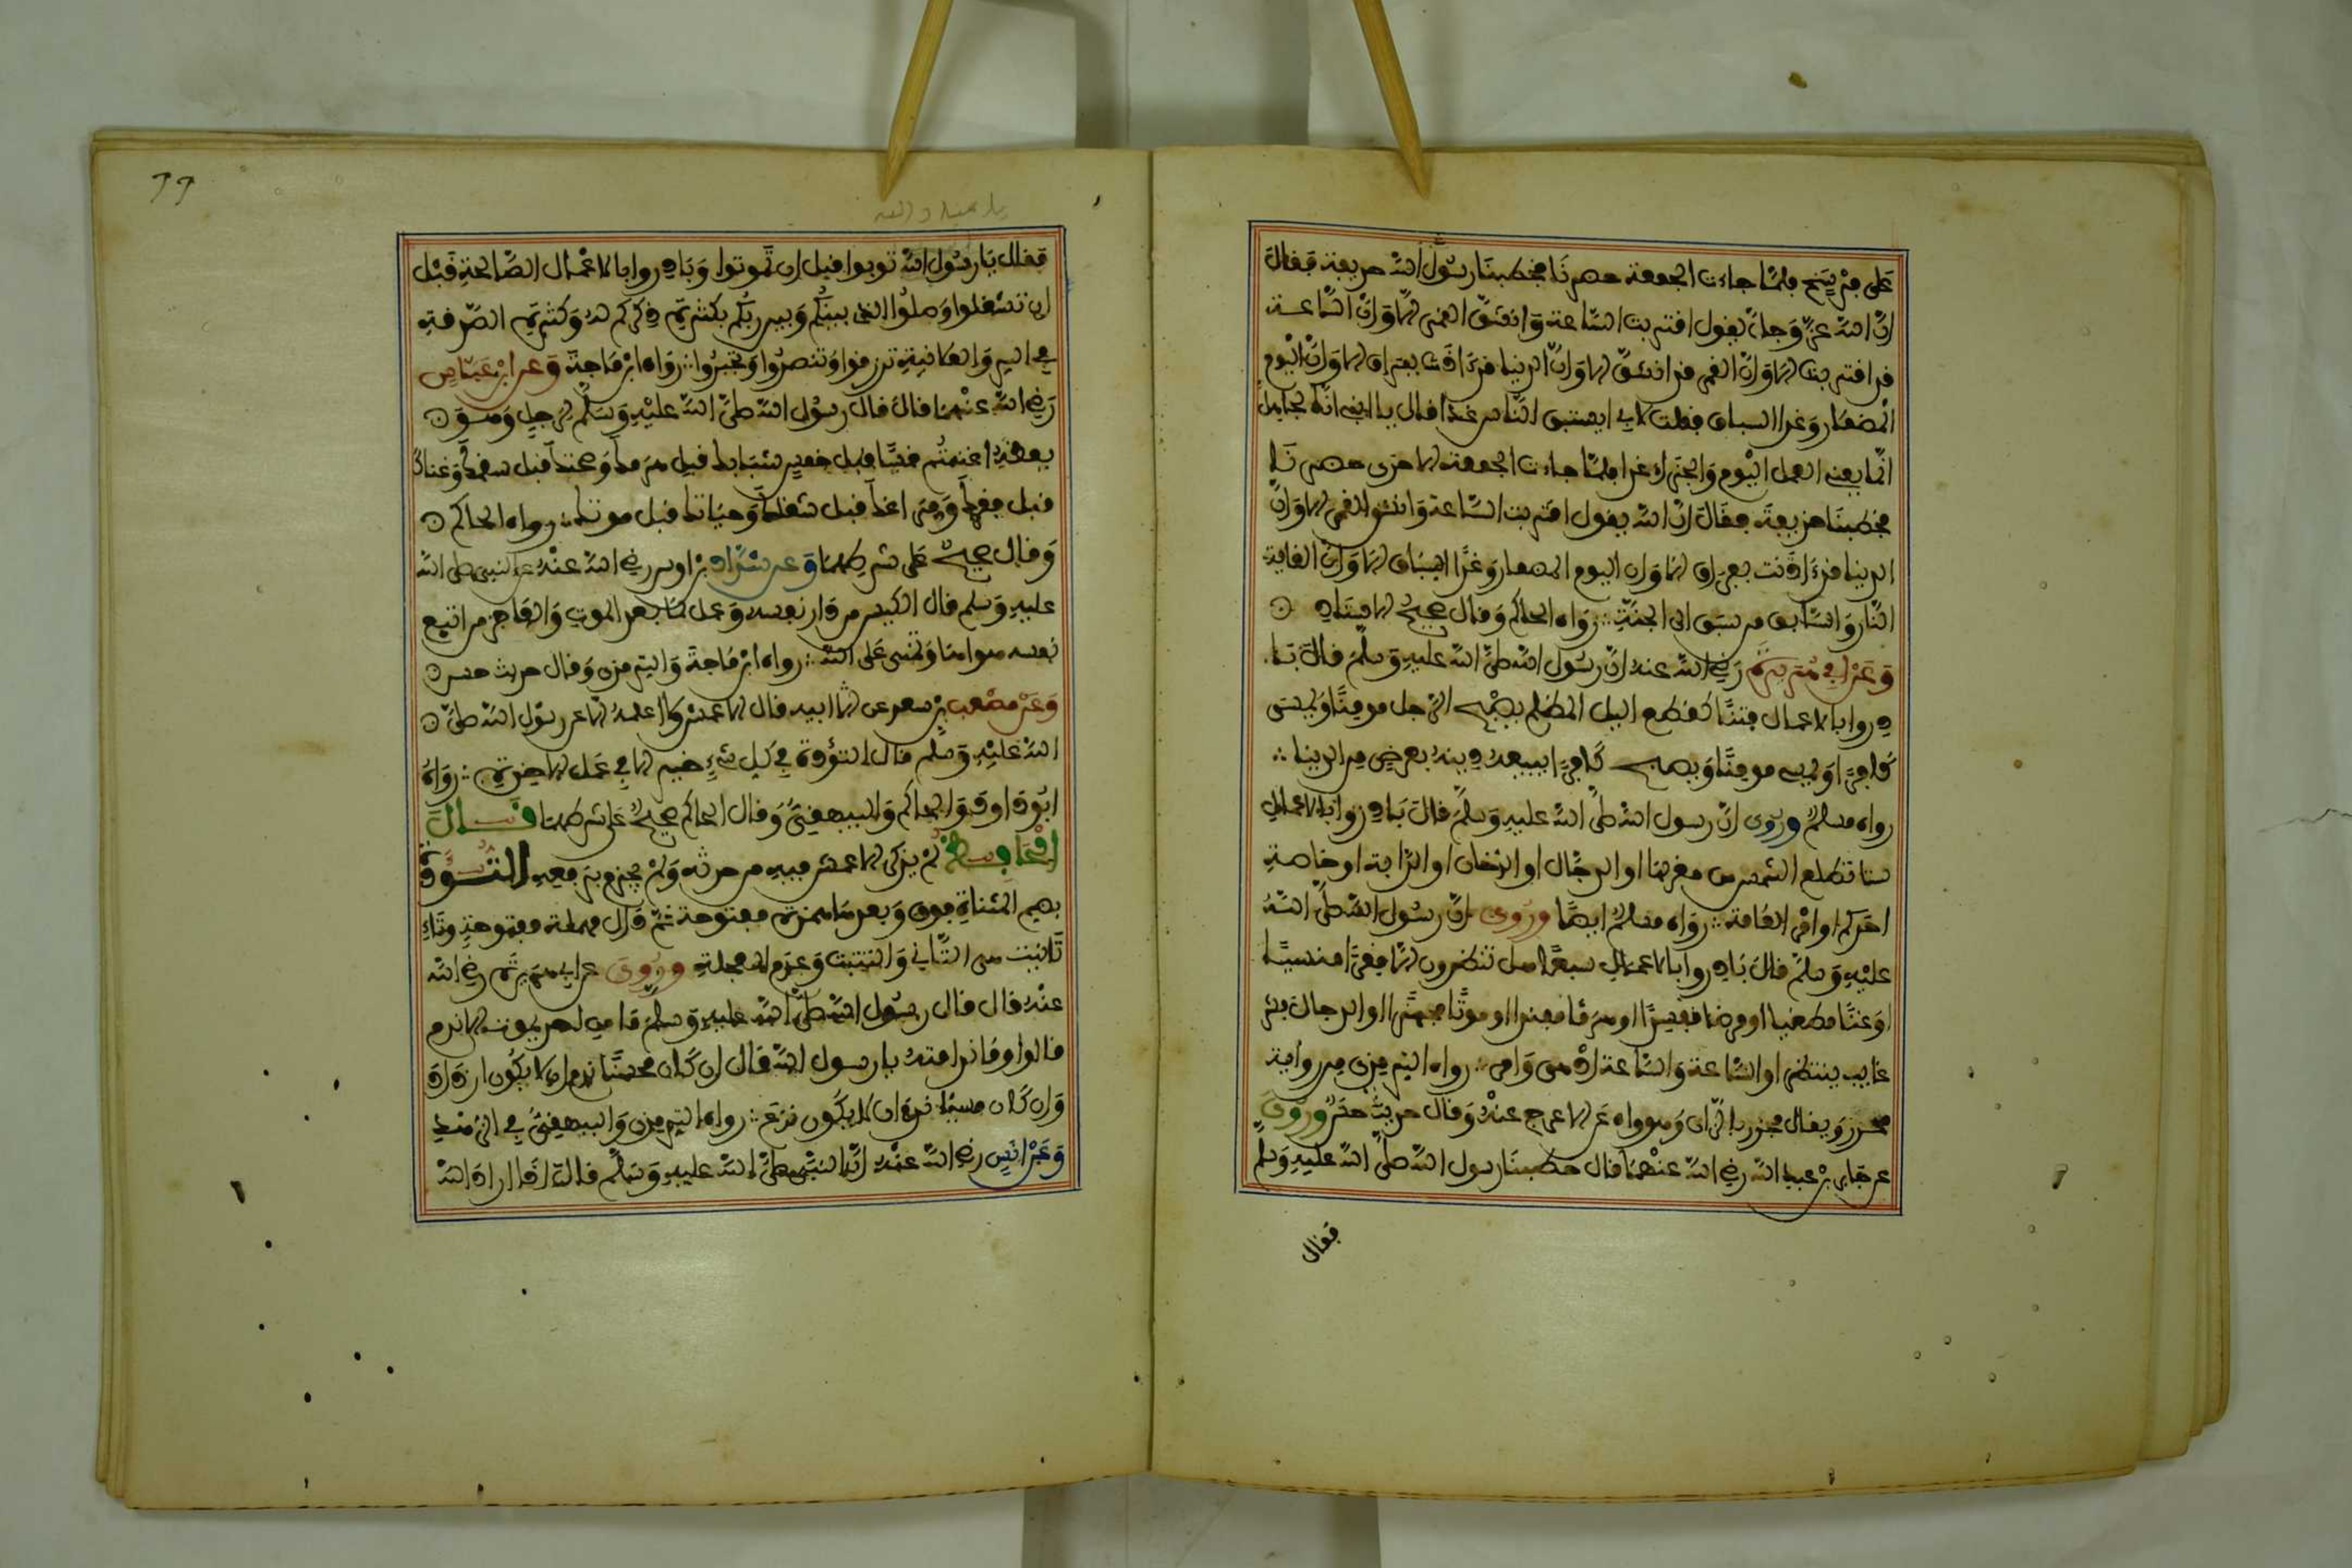 على فرسخ فلما جاءت الجمعة حضرنا فخطبنا رسول الله حذيفة فقال
ان الله عز وجل يقول اقتربت الساعة وانشق القمر الا وان الساعة
قد اقتربت الا وان القمر قد انشق الا وان الدنيا قد اذنت بفراق الا وان اليوم
المضمار وغدا السباق فقلت لابي ايستبق الناس غدا قال يا ابني انك لجاهل
انما يعني العمل اليوم والجزاء غدا فلما جاءت الجمعة الاخرى حضرنا
فخطبنا حذيفة فقال ان الله يقول اقتربت الساعة وانشق القمر الا وان
الدنيا قد اذنت بفراق الا وان اليوم المضمار وغدا السباق الا وان الغاية
النار والسابق من سبق الى الجنة رواه الحاكم وقال صحيح الاسناد
وعن ابي هريرة رضي الله عنه ان رسول الله صلى الله عليه وسلم قال با
دروا بالاعمال فتنا كقطع اليل المظلم يصبح الرجل مومنا ويمسي
كافرا ويمسي مومنا ويصبح كافرا يبيع دينه بعرض من الدنيا
رواه مسلم وروي ان رسول الله صلى الله عليه وسلم قال بادروا بالاعمال
ستا تطلع الشمس من مغربها او الدجال او الدخان او الدابة او خاصة
احدكم او امر العامة رواه مسلم ايضا وروي ان رسول الله صلى الله
عليه وسلم قال بادروا بالاعمال سبعا هل تنظرون الا فقرا منسيا
او غنا مطغيا او مرضا مفسدا او هرما مفندا او موتا مجهزا او الدجال فشر
غايب ينتظر او الساعة والساعة ادهى وامر رواه الترمذي من رواية
محرز ويقال محرر بالراء وهو واه عن الاعرج عنه وقال حديث حسن وروي
عن جابر بن عبد الله رضي الله عنهما قال خطبنا رسول الله صلى الله عليه وسلم
فقال
فقال يا رسول الله توبوا قبل ان تموتوا وبادروا بالاعمال الصالحة قبل
ان تشغلوا وصلوا الذي بينكم وبين ربكم بكثرة ذكركم له وكثرة الصدقة
في السر والعلانية ترزقوا وتنصروا وتجبروا رواه ابن ماجة وعن ابن عباس
رضي الله عنهما قال قال رسول الله صلى الله عليه وسلم لرجل وهو
يعظه اغتنم خمسا قبل خمس شبابك قبل هرمك وصحتك قبل سقمك وغناك
قبل فقرك وفراغك قبل شغلك وحياتك قبل موتك رواه الحاكم
وقال صحيح على شرطهما وعن شداد بن اوس رضي الله عنه عن النبي صلى الله
عليه وسلم قال الكيس من دان نفسه وعمل لما بعد الموت والعاجز من اتبع
نفسه هواها وتمنى على الله رواه ابن ماجة والترمذي وقال حديث حسن
وعن مصعب بن سعد عن ابيه قال الاعمش ولا اعلمه الا عن رسول الله صلى
الله عليه وسلم قال التؤدة في كل شيء خير الا في عمل الاخرة رواه
ابو داود والحاكم والبيهقي وقال الحاكم صحيح على شرطهما قال
الحافظ لم يذكر الاعمش فيه من حدثه ولم يجزم برفعه التؤدة
بضم المثناة فوق وبعدها همزة مفتوحة ثم دال مهملة مفتوحة وتاء
تانيث هي التاني والتثبت وعدم العجلة وروي عن ابي هريرة رضي الله
عنه قال قال رسول الله صلى الله عليه وسلم ما من احد يموت الا ندم
قالوا وما ندامته يا رسول الله قال ان كان محسنا ندم ان لا يكون ازداد
وان كان مسيئا ندم ان لا يكون نزع رواه الترمذي والبيهقي في الزهد
وعن انس رضي الله عنه ان النبي صلى الله عليه وسلم قال اذا اراد الله